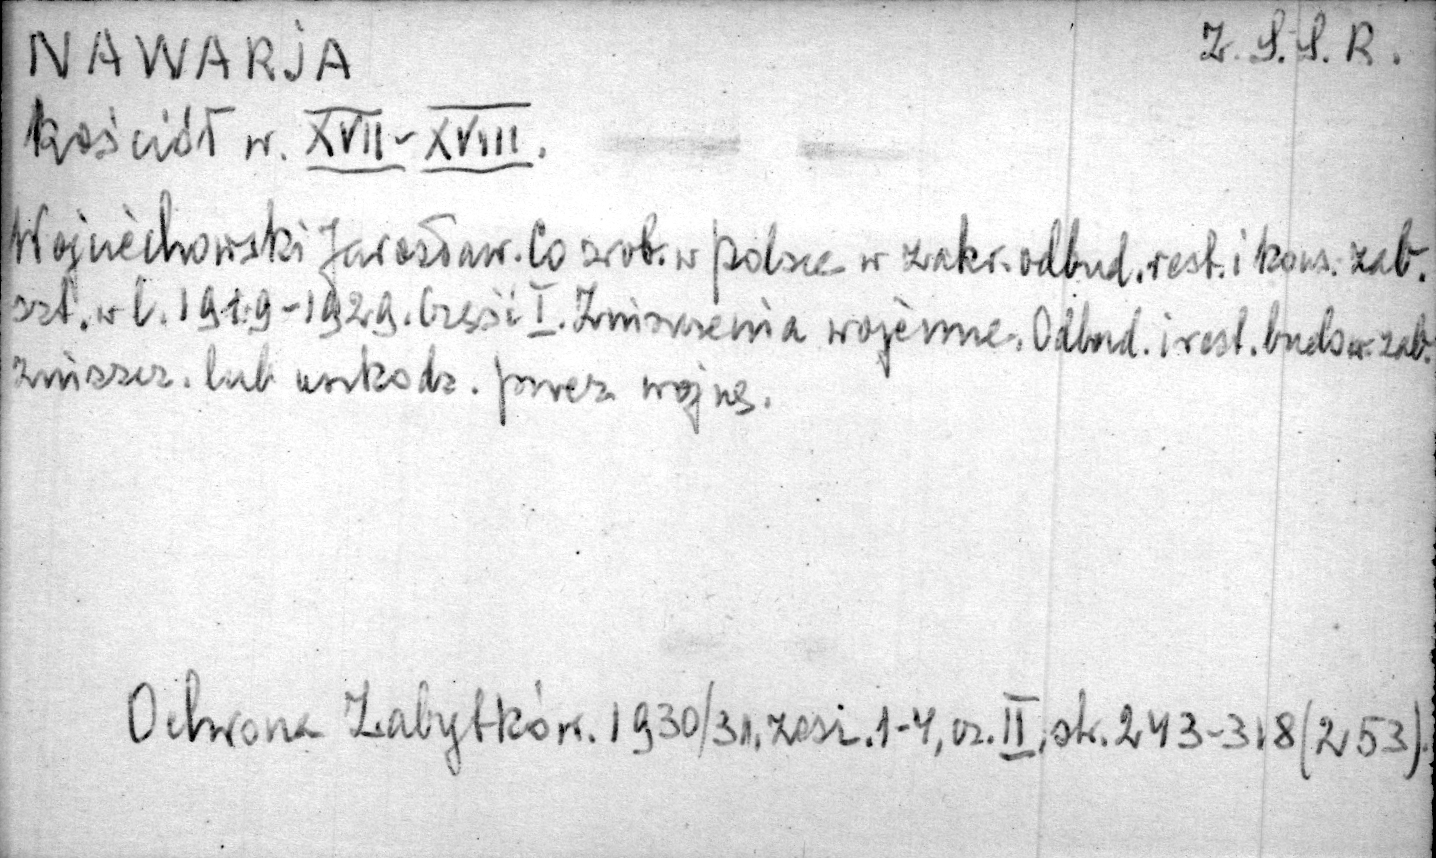 NAWARJA
Z.S.S.R.
Kościół w. XVII-XVIII.
Wojciechowski Jarosław. Co zrob. w Polsce w zakr. odbud. rest. i kons. zab.
szt. w l. 1919-1929. Część I. Zniszczenia wojenne. Odbud. i rest. budow. zab.
zniszcz. lub uszkodz. przez wojnę.
Ochrona Zabytków. 1930/31, zesz. 1-4, cz. II, str. 243-318 (253).